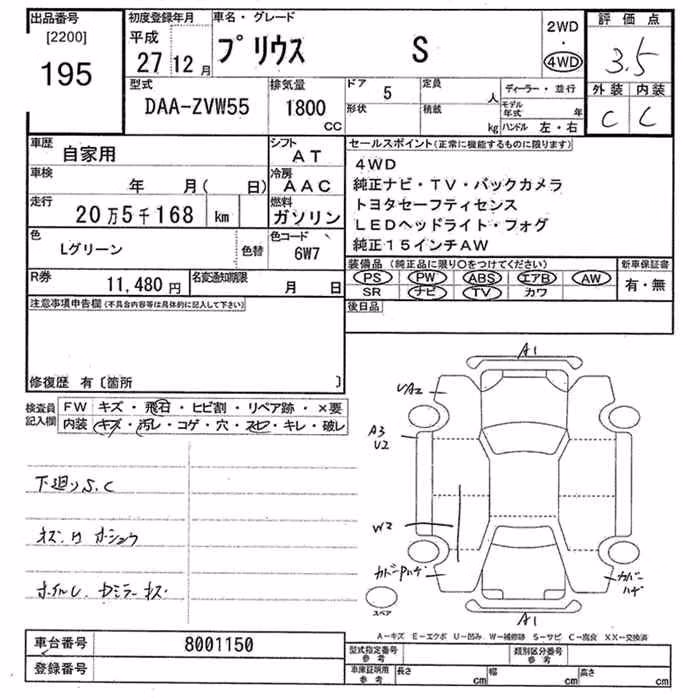 出品番号 初度登録年月 車名・グレード 評価点
[2200] 平成 プリウス S 2WD・4WD 3.5
195 27 12月
型式 排気量 ドア 5 定員 人 ディーラー・並行 外装 内装
DAA-ZVW55 1800 CC 形状 積載 kg モデル年式 年 C C
ハンドル 左・右
車歴 自家用 シフト AT セールスポイント(正常に機能するものに限ります)
車検 年 月( 日) 冷房 AAC 4WD
走行 20万5千168 km 燃料 ガソリン 純正ナビ・TV・バックカメラ
トヨタセーフティセンス
色 Lグリーン 色替 色コード 6W7 LEDヘッドライト・フォグ
純正15インチAW
R券 11,480円 名変通知期限 月 日 装備品 (純正品に限り○をつけてください) 新車保証書
PS PW ABS エアB AW 有・無
SR ナビ TV カワ
注意事項申告欄(不具合内容等は具体的に記入して下さい) 後日品
修復歴 有〔箇所 〕
検査員記入欄 FW キズ・飛石・ヒビ割・リペア跡・×要
内装 キズ・汚レ・コゲ・穴・スレ・キレ・破レ
A1
UA2
A3
U2
下廻りS.C
W2
キズ.凹
カバーハガ カバーハガ
スペア
A1
A-キズ E-エクボ U-凹み W-補修跡 S-サビ C-腐食 XX-交換済
車台番号 8001150 型式指定番号 参考 類別区分番号 参考
登録番号 車庫証明用 参考 長さ cm 幅 cm 高さ cm